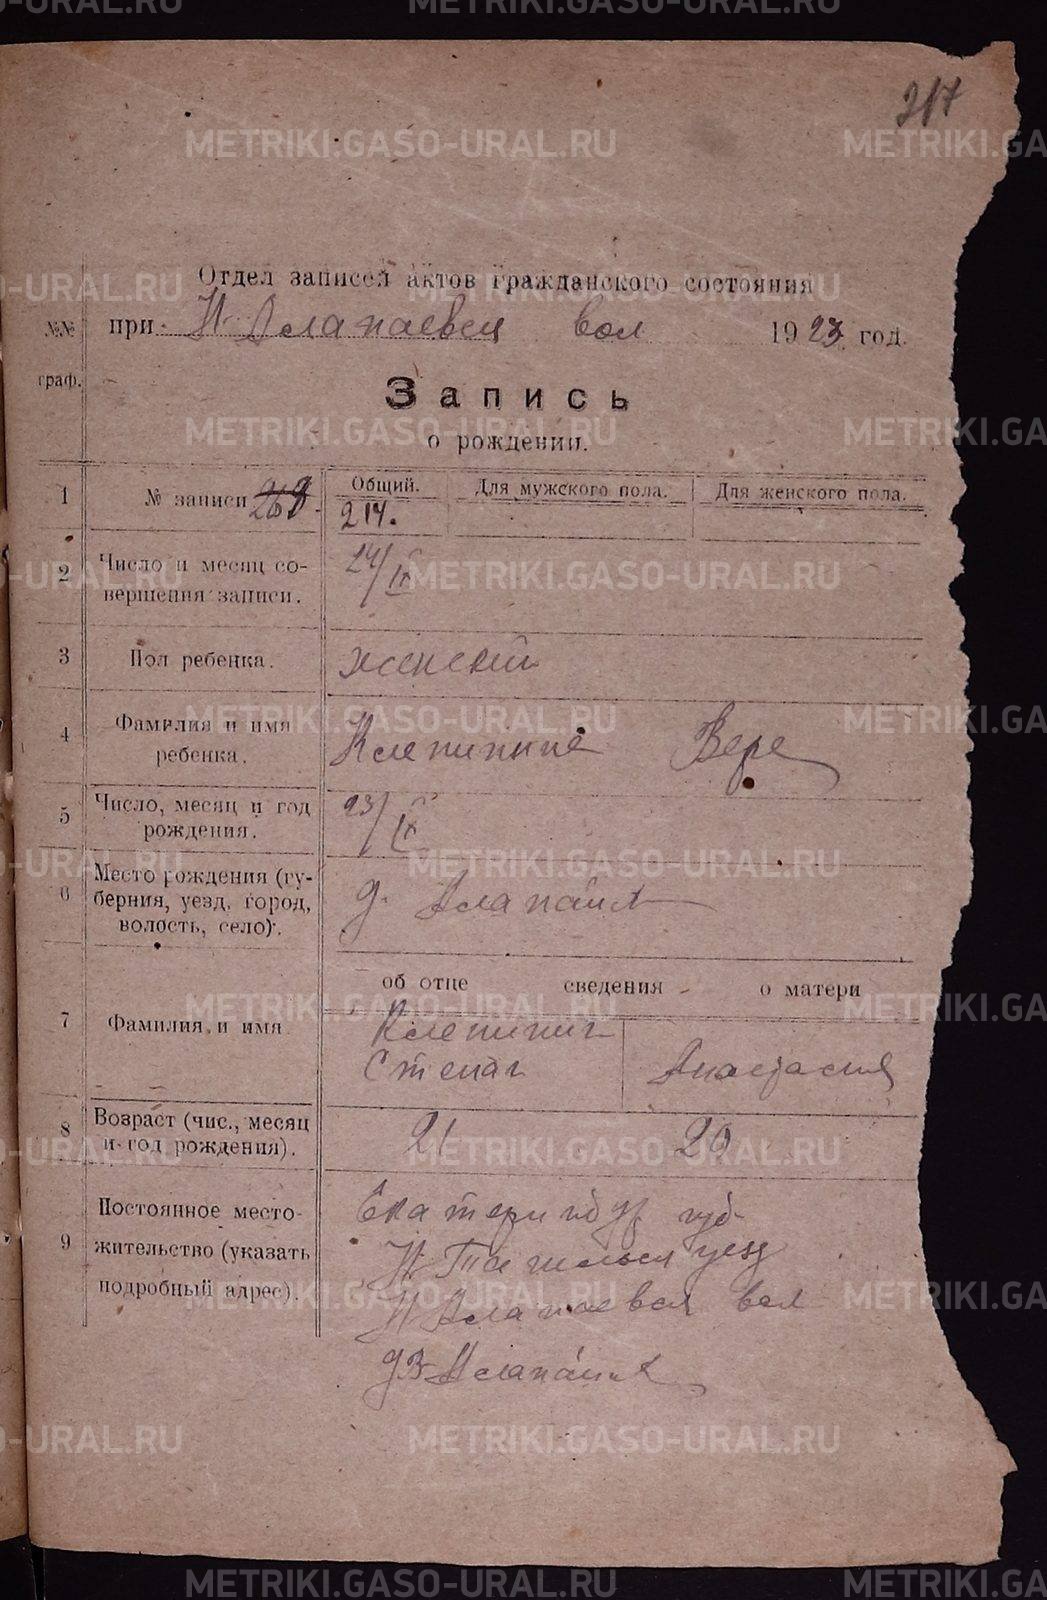 217
Отдел записей актов гражданского состояния
при Н Алапаевск вол 1923 год.
№№ граф.
Запись
о рождении.
1 № записи 268 Общий. Для мужского пола. Для женского пола.
214.
2 Число и месяц со-
вершения записи.
24/IX
3 Пол ребенка. женский
4 Фамилия и имя
ребенка.
Клепинине Вере
5 Число, месяц и год
рождения.
23/IX
6 Место рождения (гу-
берния, уезд, город,
волость, село).
д. Алапаиха
об отце сведения о матери
7 Фамилия и имя
Клепинин
Степан Анастасия
8 Возраст (чис., месяц
и год рождения).
21 20
9 Постоянное место-
жительство (указать
подробный адрес).
Екатеринбур губ
Н Тагильский уезд
Н Алапаевская вол
Алапаиха
METRIKI.GASO-URAL.RU